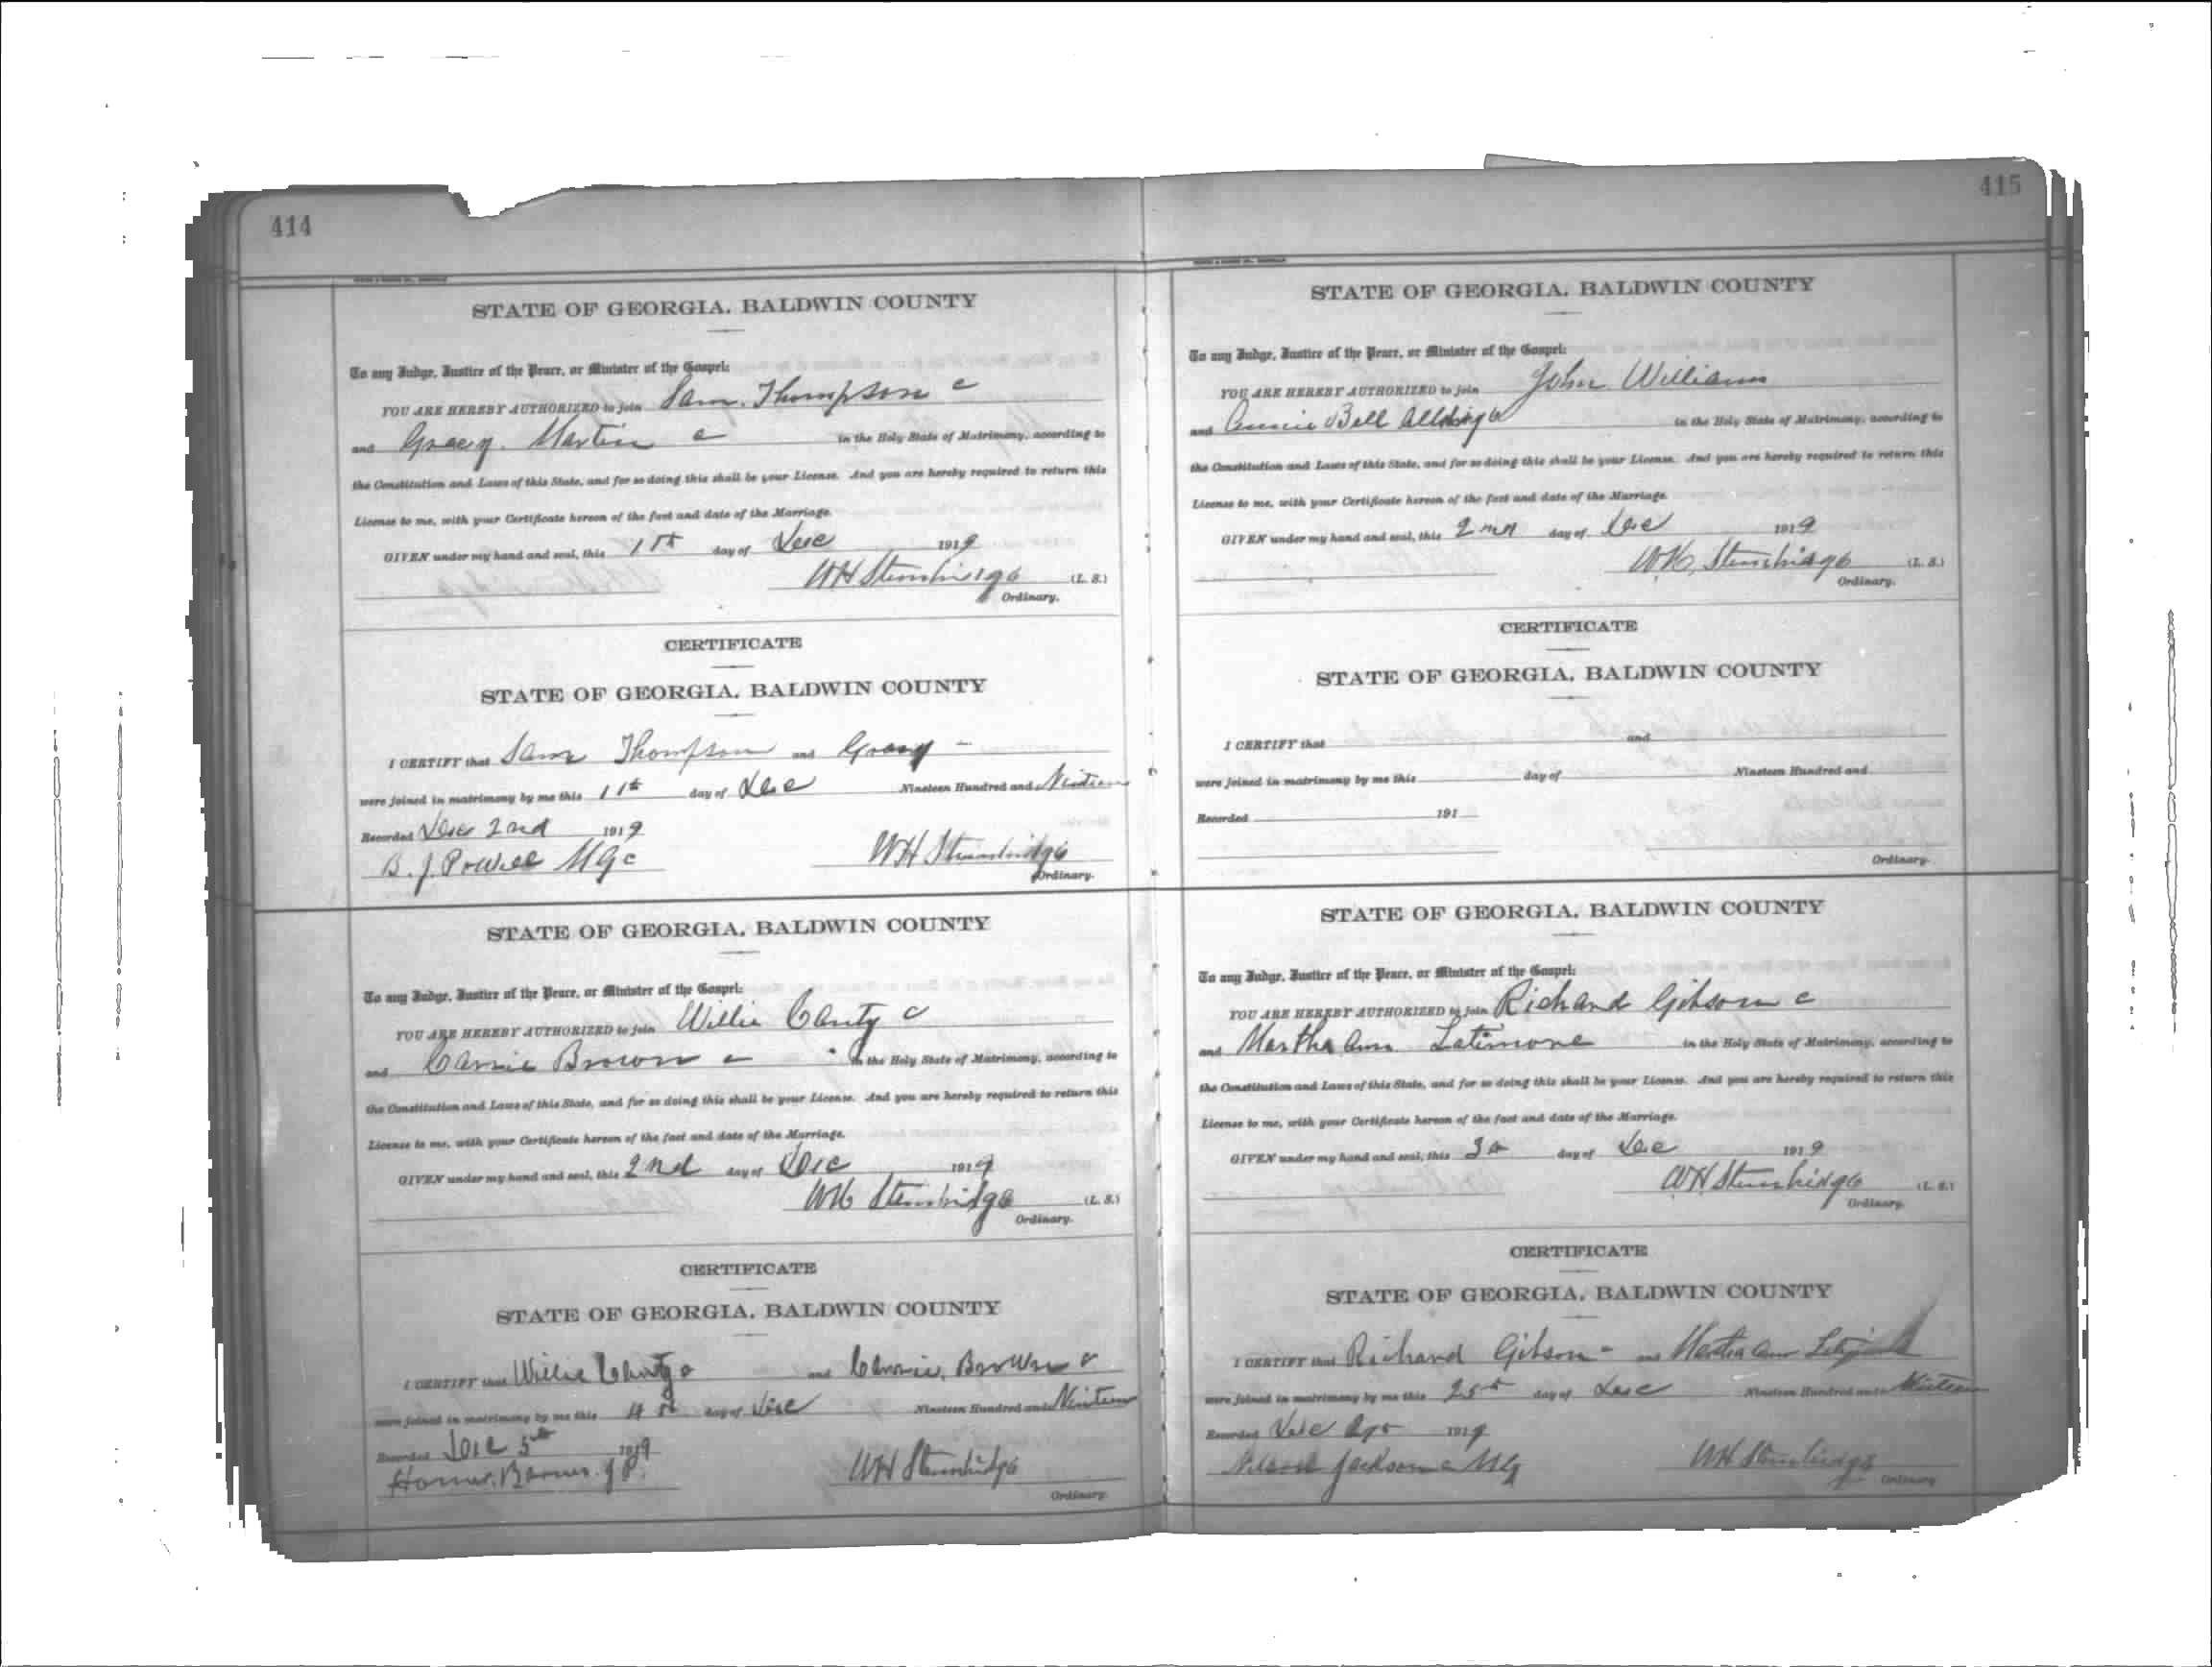 414
STATE OF GEORGIA. BALDWIN COUNTY
To any Judge, Justice of the Peace, or Minister of the Gospel:
YOU ARE HEREBY AUTHORIZED to join Sam. Thompson c
and Gracy. Martin c in the Holy State of Matrimony, according to
the Constitution and Laws of this State, and for so doing this shall be your License. And you are hereby required to return this
License to me, with your Certificate hereon of the fact and date of the Marriage.
GIVEN under my hand and seal, this 1st day of Dec 1919
WH Stembridge (L. S.)
Ordinary.
CERTIFICATE
STATE OF GEORGIA. BALDWIN COUNTY
I CERTIFY that Sam Thompson and Gracy
were joined in matrimony by me this day of Dec Nineteen Hundred and Ninteen
Recorded Dec 2nd 1919
B. J. Powell MGc WH Stembridge
Ordinary.
STATE OF GEORGIA. BALDWIN COUNTY
To any Judge, Justice of the Peace, or Minister of the Gospel:
YOU ARE HEREBY AUTHORIZED to join Willie Canty c
and Carrie Brown c in the Holy State of Matrimony, according to
the Constitution and Laws of this State, and for so doing this shall be your License. And you are hereby required to return this
License to me, with your Certificate hereon of the fact and date of the Marriage.
GIVEN under my hand and seal, this 2nd day of Dec 1919
WH Stembridge (L. S.)
Ordinary.
CERTIFICATE
STATE OF GEORGIA. BALDWIN COUNTY
I CERTIFY that Willie and Carrie Brown c
were joined in matrimony by me this day of Dec Nineteen Hundred and Ninteen
Recorded Dec 5th 1919
Homer. Barnes. J P. WH Stembridge
Ordinary.
415
STATE OF GEORGIA. BALDWIN COUNTY
To any Judge, Justice of the Peace, or Minister of the Gospel:
YOU ARE HEREBY AUTHORIZED to join John Williams
and Annie Bell in the Holy State of Matrimony, according to
the Constitution and Laws of this State, and for so doing this shall be your License. And you are hereby required to return this
License to me, with your Certificate hereon of the fact and date of the Marriage.
GIVEN under my hand and seal, this 2nd day of Dec 1919
WH, Stembridge (L. S.)
Ordinary.
CERTIFICATE
STATE OF GEORGIA. BALDWIN COUNTY
I CERTIFY that and
were joined in matrimony by me this day of Nineteen Hundred and
Recorded 191
Ordinary.
STATE OF GEORGIA. BALDWIN COUNTY
To any Judge, Justice of the Peace, or Minister of the Gospel:
YOU ARE HEREBY AUTHORIZED to join Richard Gibson c
and Martha Ann Latimore in the Holy State of Matrimony, according to
the Constitution and Laws of this State, and for so doing this shall be your License. And you are hereby required to return this
License to me, with your Certificate hereon of the fact and date of the Marriage.
GIVEN under my hand and seal, this day of Dec 1919
WH Stembridge (L. S.)
Ordinary.
CERTIFICATE
STATE OF GEORGIA. BALDWIN COUNTY
I CERTIFY that Richard Gibson and Martha Ann
were joined in matrimony by me this 25th day of Dec Nineteen Hundred and Ninteen
Recorded Dec 1919
Jackson c MG WH Stembridge
Ordinary